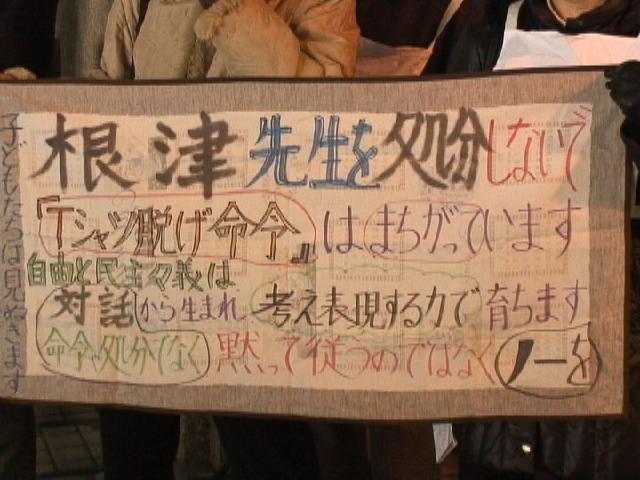 根津先生を処分しないで
『Tシャツ脱げ命令』はまちがっています
自由と民主々義は
対話から生まれ 考え表現する力で育ちます
命令、処分でなく 黙って従うのではなく ノーを
子どもたちは見ぬきます